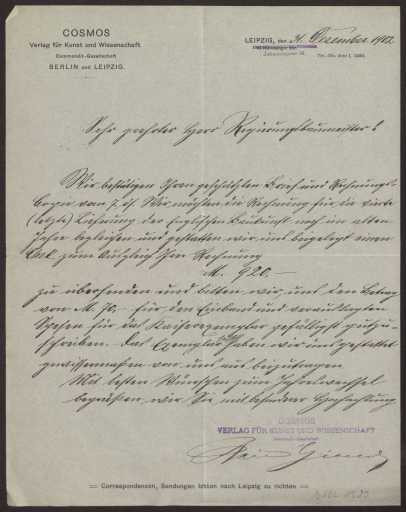 COSMOS
Verlag für Kunst und Wissenschaft
Commandit-Gesellschaft
BERLIN und LEIPZIG.
LEIPZIG, den 31. Dezember 1902
Sehr geehrter Herr Regierungsbaumeister!
Wir bestätigen Ihren geschätzten Brief und Rechnungs-
Copie vom 7. ds. Wir möchten die Rechnung für die vierte
(letzte) Lieferung der Englischen Baukunst noch im alten
Jahre begleichen und gestatten wir uns beigelegt einen
zum Ausgleich Ihrer Rechnung
M. 920.—
zu übersenden und bitten wir uns den Betrag
von M. 70,- für den Einband und verauslagten
Spesen für das Kaiserexemplar gefälligst gutzu-
schreiben. Das Exemplar haben wir uns gestattet
von uns aus beizutragen
Mit besten Wünschen zum Jahreswechsel
begrüßen wir Sie mit besonderer Hochachtung
COSMOS
VERLAG FÜR KUNST UND WISSENSCHAFT
Correspondenzen, Sendungen bitten nach Leipzig zu richten